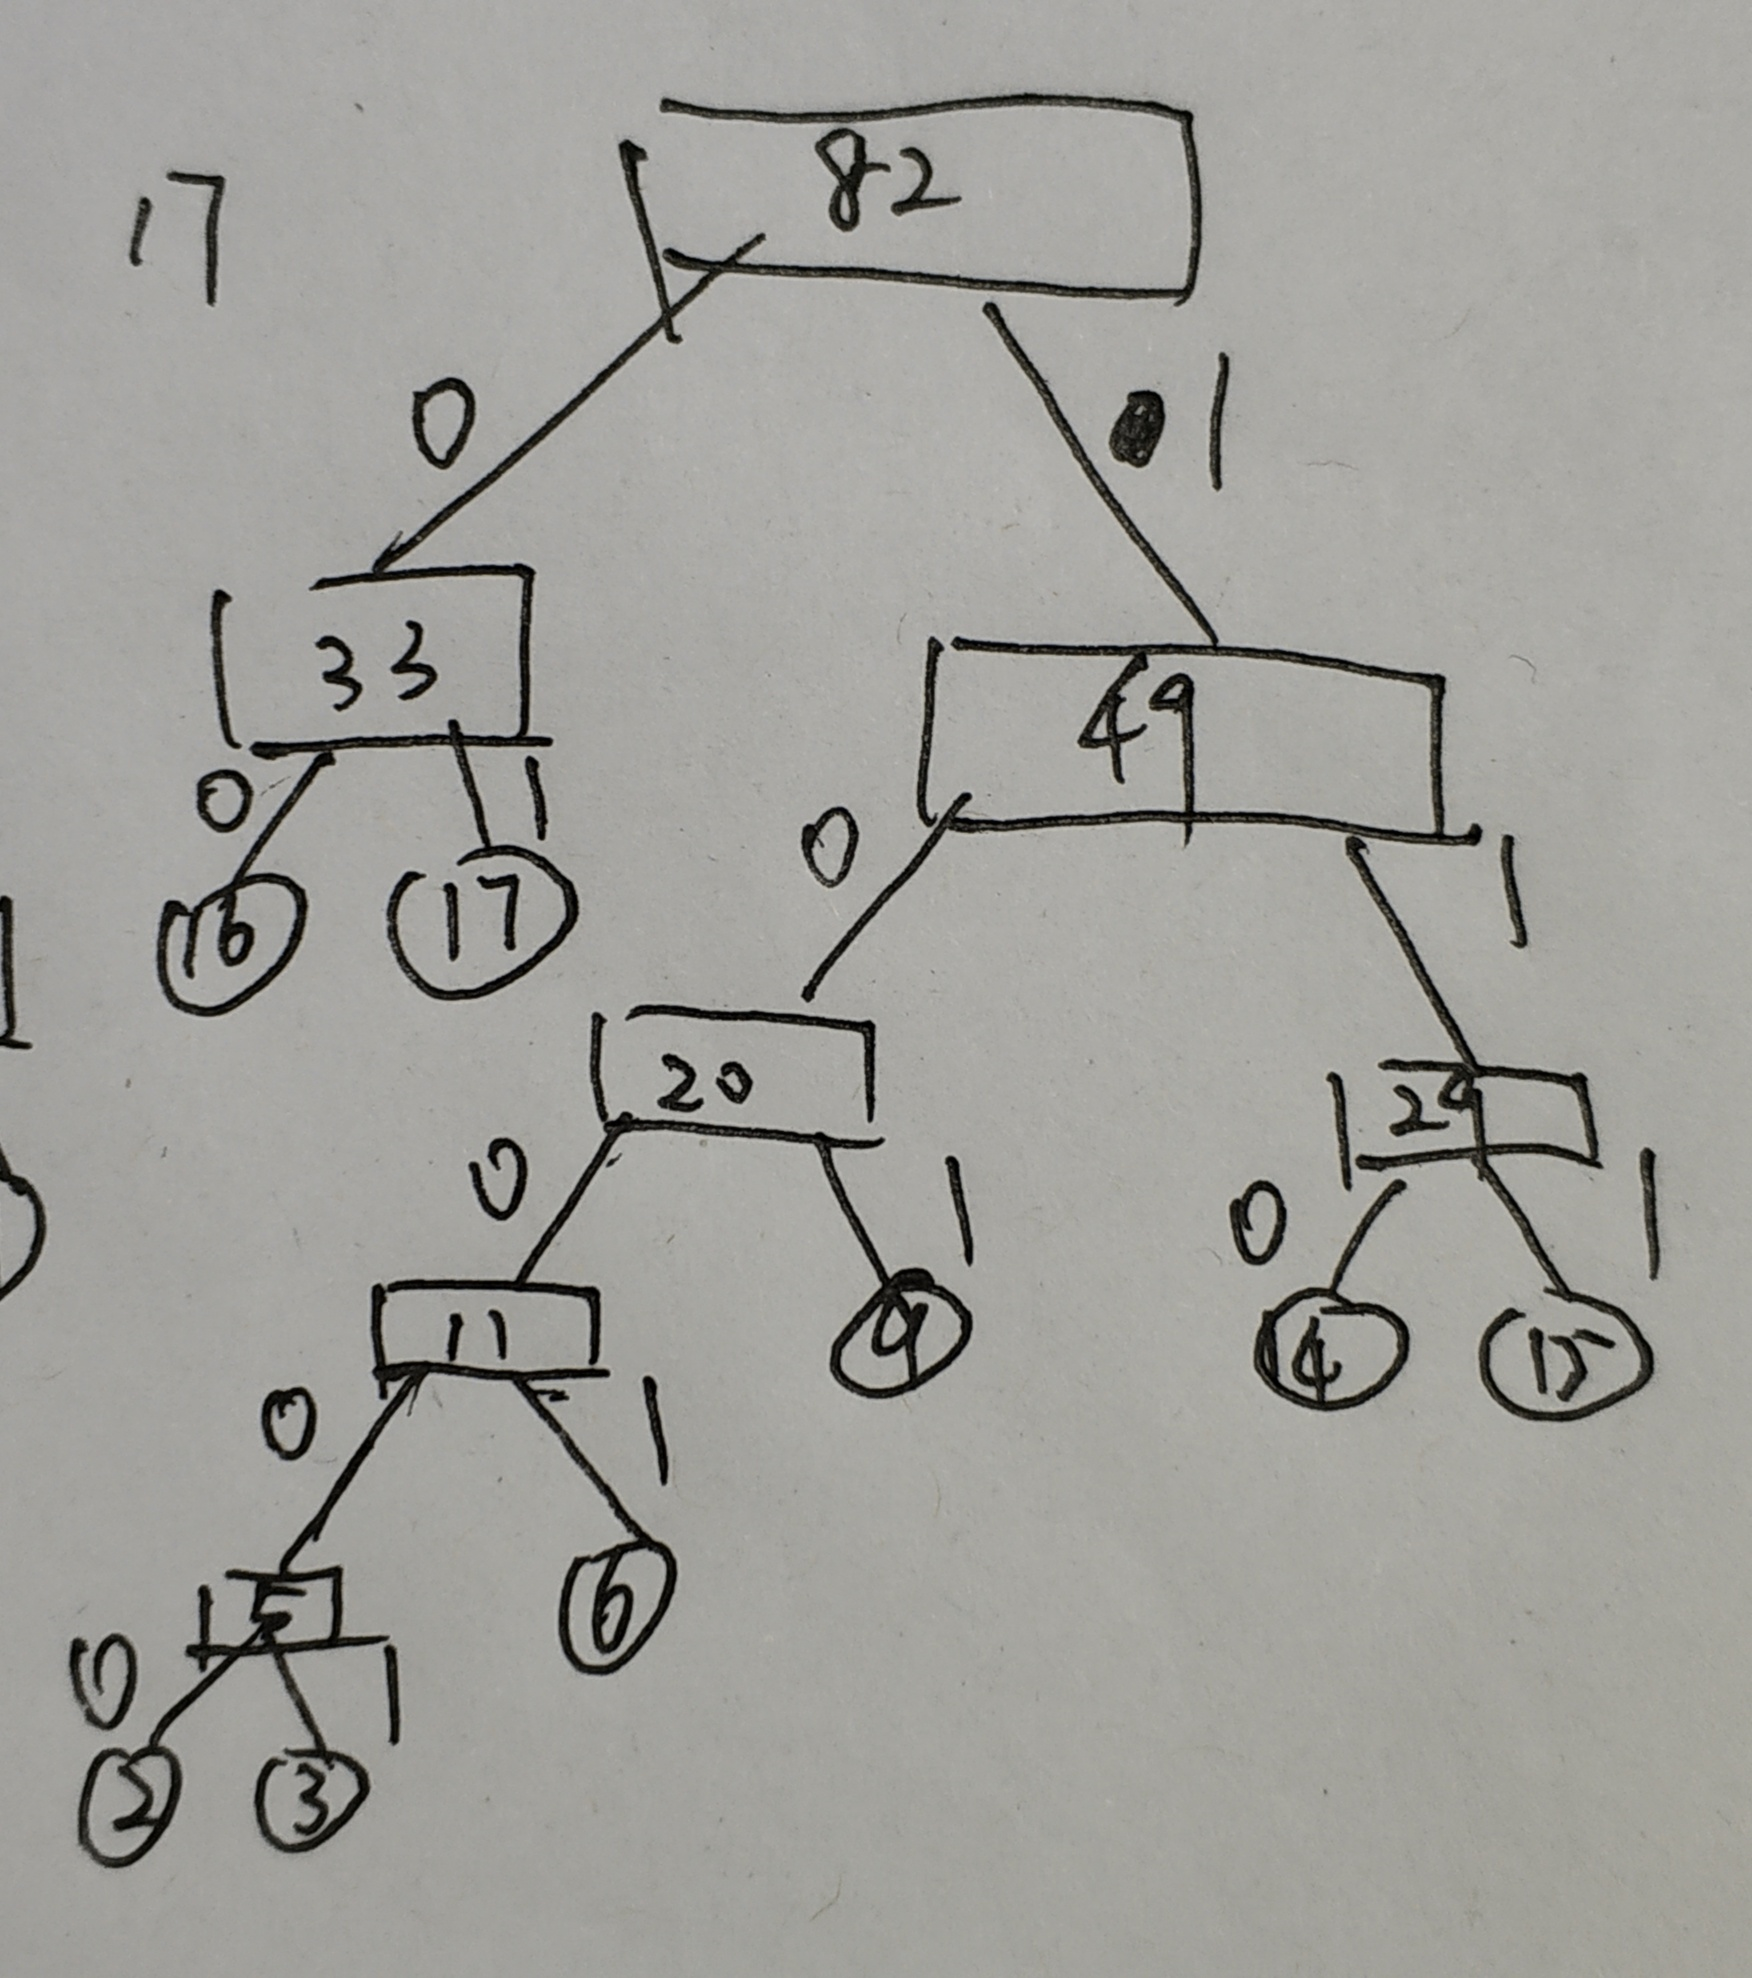 82
17
0 1
33
49
0 1
0 1
16 17
20
29
0 1
0 1
11
9
14 15
0 1
5
6
0 1
2 3